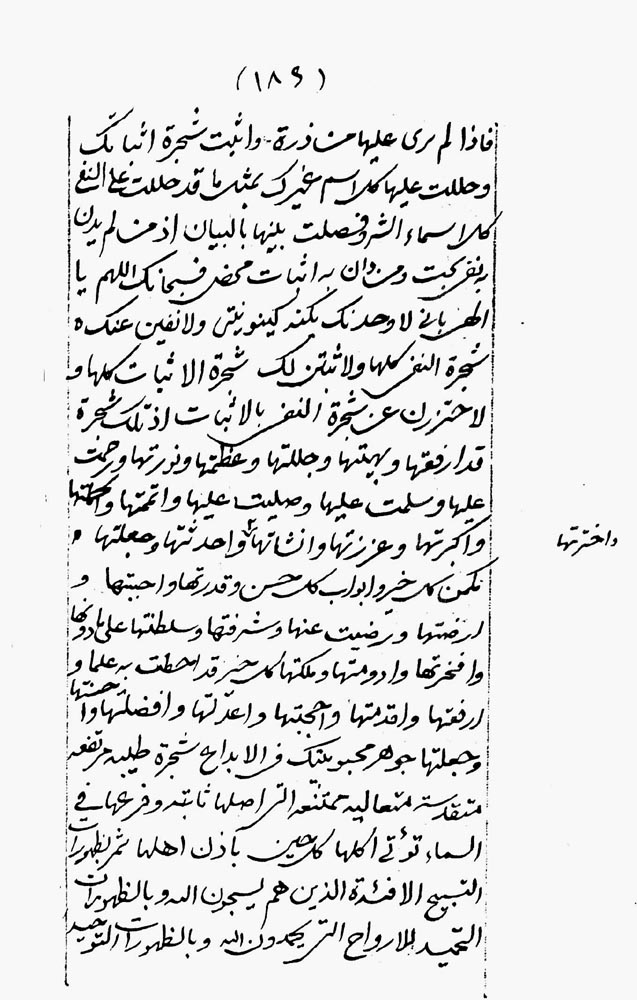 (١٨٩)
فاذا لم يرى عليها من ذرة - واثبت شجرة اثباتك
وحللت عليها كل اسم غيرك بمثل ما قد حللت على النفي
كل اسماء الشر وفصلت بينها بالبيان اذ من لم يدن
به نفي بحت ومن دان به اثبات محض فسبحانك اللهم يا
الهي باني لاوحدنك بكنه كينونيتي ولانفين عنك
شجرة النفي كلها ولاثبتن لك شجرة الاثبات كلها و
لاحترزن عن شجرة النفي بالاثبات اذ تلك شجرة
قد ارفعتها وبهيتها وجللتها وعظمتها ونورتها ورحمت
عليها وسلمت عليها وصليت عليها واتممتها واكملتها
واكبرتها وعززتها وانشاتها واحدثتها وجعلتها
مكمن كل خير وابواب كل حسن وقدرتها واحببتها و
ارضيتها ورضيت عنها وشرفتها وسلطتها على ما دونها
وافخرتها وادومتها وملكتها كل خير قد احطت به علما و
ارفعتها واقدمتها واحججتها واعدلتها وافضلتها واحسنتها
وجعلتها جوهر محبوبيتك في الابداع شجرة طيبة مرتفعه
متقدسة متعاليه ممتنعه التي اصلها ثابته وفرعها في
السماء تؤتي اكلها كل حين باذن اهلها ثمر بظهورات
التسبيح الافئدة الذين هم يسبحون الله وبالظهورات
التحميد للارواح التي يحمدون الله وبالظهورات التوحيد
واخترتها